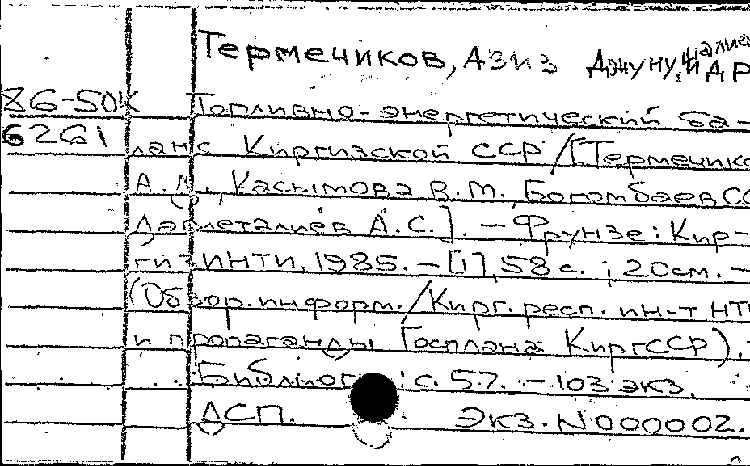 Термечиков, Азиз Джуну, и др
86-50к Топливно-энергетический ба-
6261 ланс Киргизской ССР/[Термечико
А.Д., Касымова В.М., Боromбаев СО
Давлеталиев А.С.]. – Фрунзе: Кир-
гизИНТИ, 1985. – [1], 58 с. ; 20см. –
(Обзор. информ./Кирг. респ. ин-т НТ
и пропаганды Госплана КиргССР).
Библиогр: с. 57. – 103 экз.
ДСП. Экз. N000002.